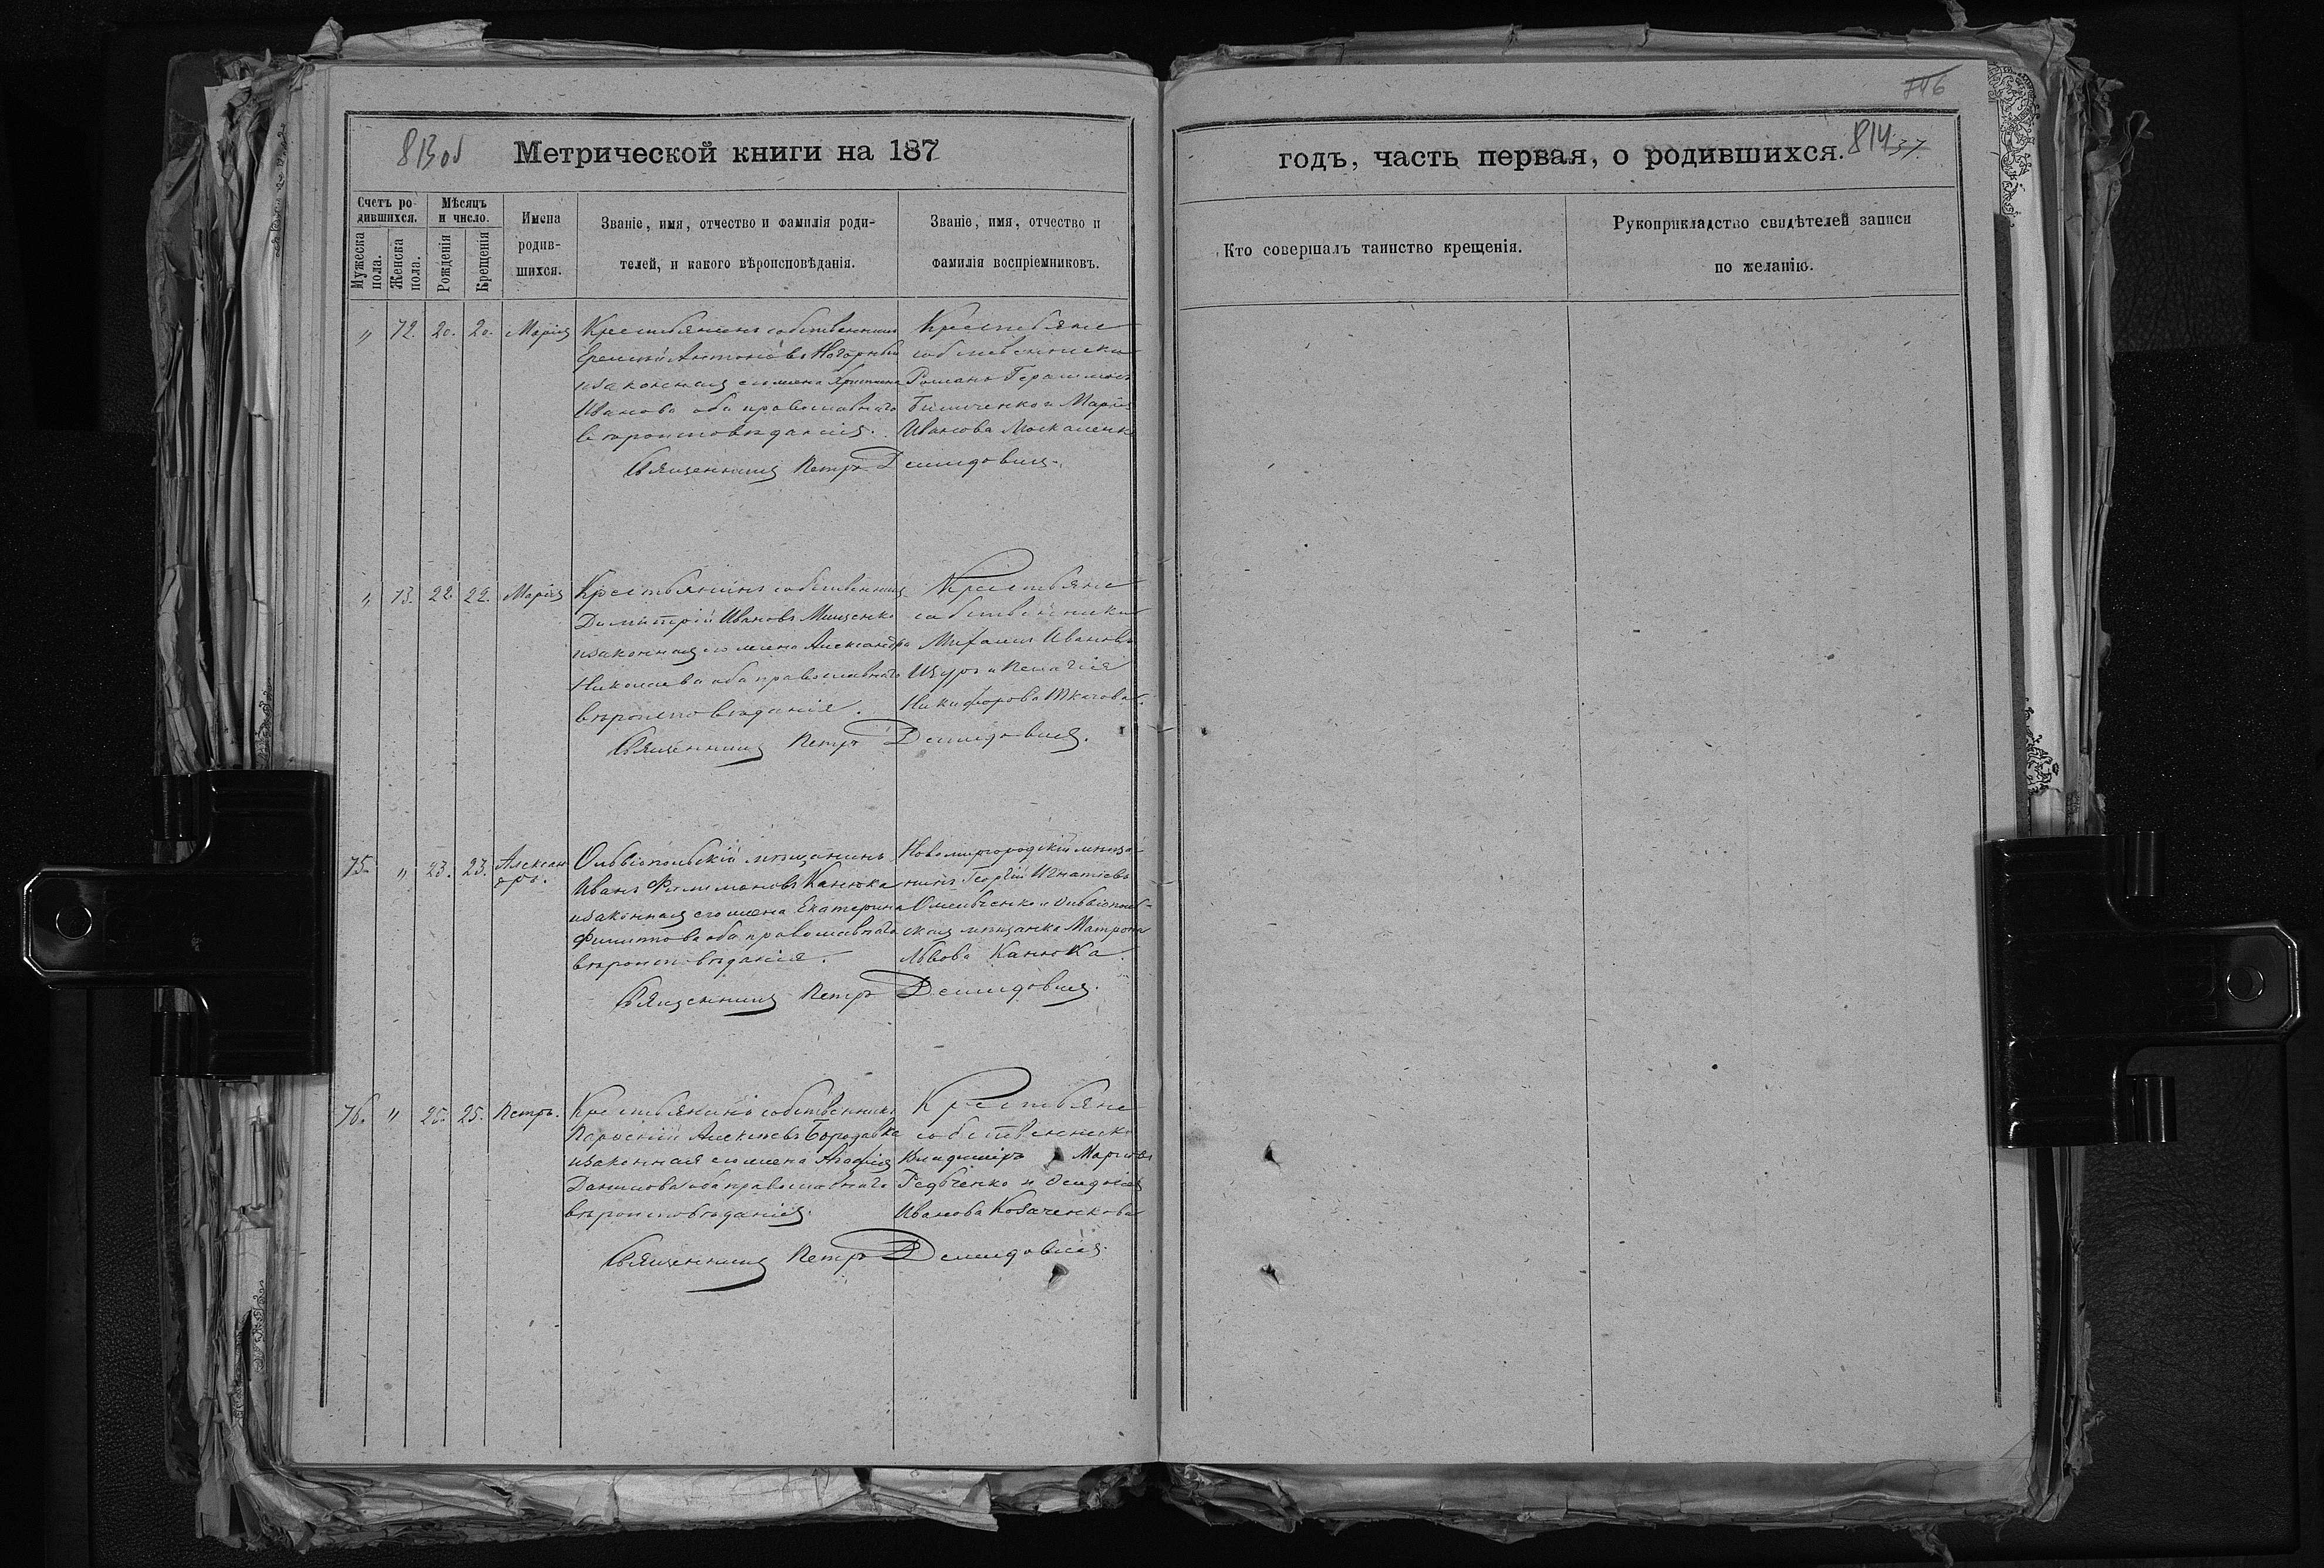 813 об
Метрической книги на 187
Счетъ ро-
дившихся.
Мужеска
пола.
Женска
пола.
Мѣсяцъ
и число.
Рожденія
Крещенія
Имена
родив-
шихся.
Званіе, имя, отчество и фамилія роди-
телей, и какого вѣроисповѣданія.
Званіе, имя, отчество и
фамилія воспріемниковъ.
" 72. 20. 20. Марія
Крестьянинъ собственникъ
Еремѣй Антоновъ Нагорный
и законная его жена Христина
Иванова оба православнаго
вѣроисповѣданія.
Крестьяне
собственники
Романъ Герасимовъ
и Марія
Иванова Москаленко
Священникъ Петръ Демидовичъ.
" 73. 22. 22. Марія
Крестьянинъ собственникъ
Димитрій Ивановъ Мищенко
и законная его жена Александра
Николаева оба православнаго
вѣроисповѣданія.
Крестьяне
собственники
Михаилъ Ивановъ
и Пелагія
Никифорова Ткачова.
Священникъ Петръ Демидовичъ.
75. " 23. 23. Алексан
дръ.
Ольвіопольскій мѣщанинъ
Иванъ Филимоновъ Канюка
и законная его жена Екатерина
Филиппова оба православнаго
вѣроисповѣданія.
Новомиргородскій мѣща-
нинъ Георгій Игнатіевъ
Омельченко и Ольвіополь-
ская мѣщанка Матрона
Львова Канюка.
Священникъ Петръ Демидовичъ.
76. " 25. 25. Петръ.
Крестьянинъ собственникъ
Алексѣевъ Бородавка
и законная его жена Агафія
Данилова оба православнаго
вѣроисповѣданія.
Крестьяне
собственники
Владиміръ Марковъ
Редьченко и
Иванова Козаченкова
Священникъ Петръ Демидовичъ.
годъ, часть первая, о родившихся.
814
37.
Кто совершалъ таинство крещенія.
Рукоприкладство свидѣтелей записи
по желанію.